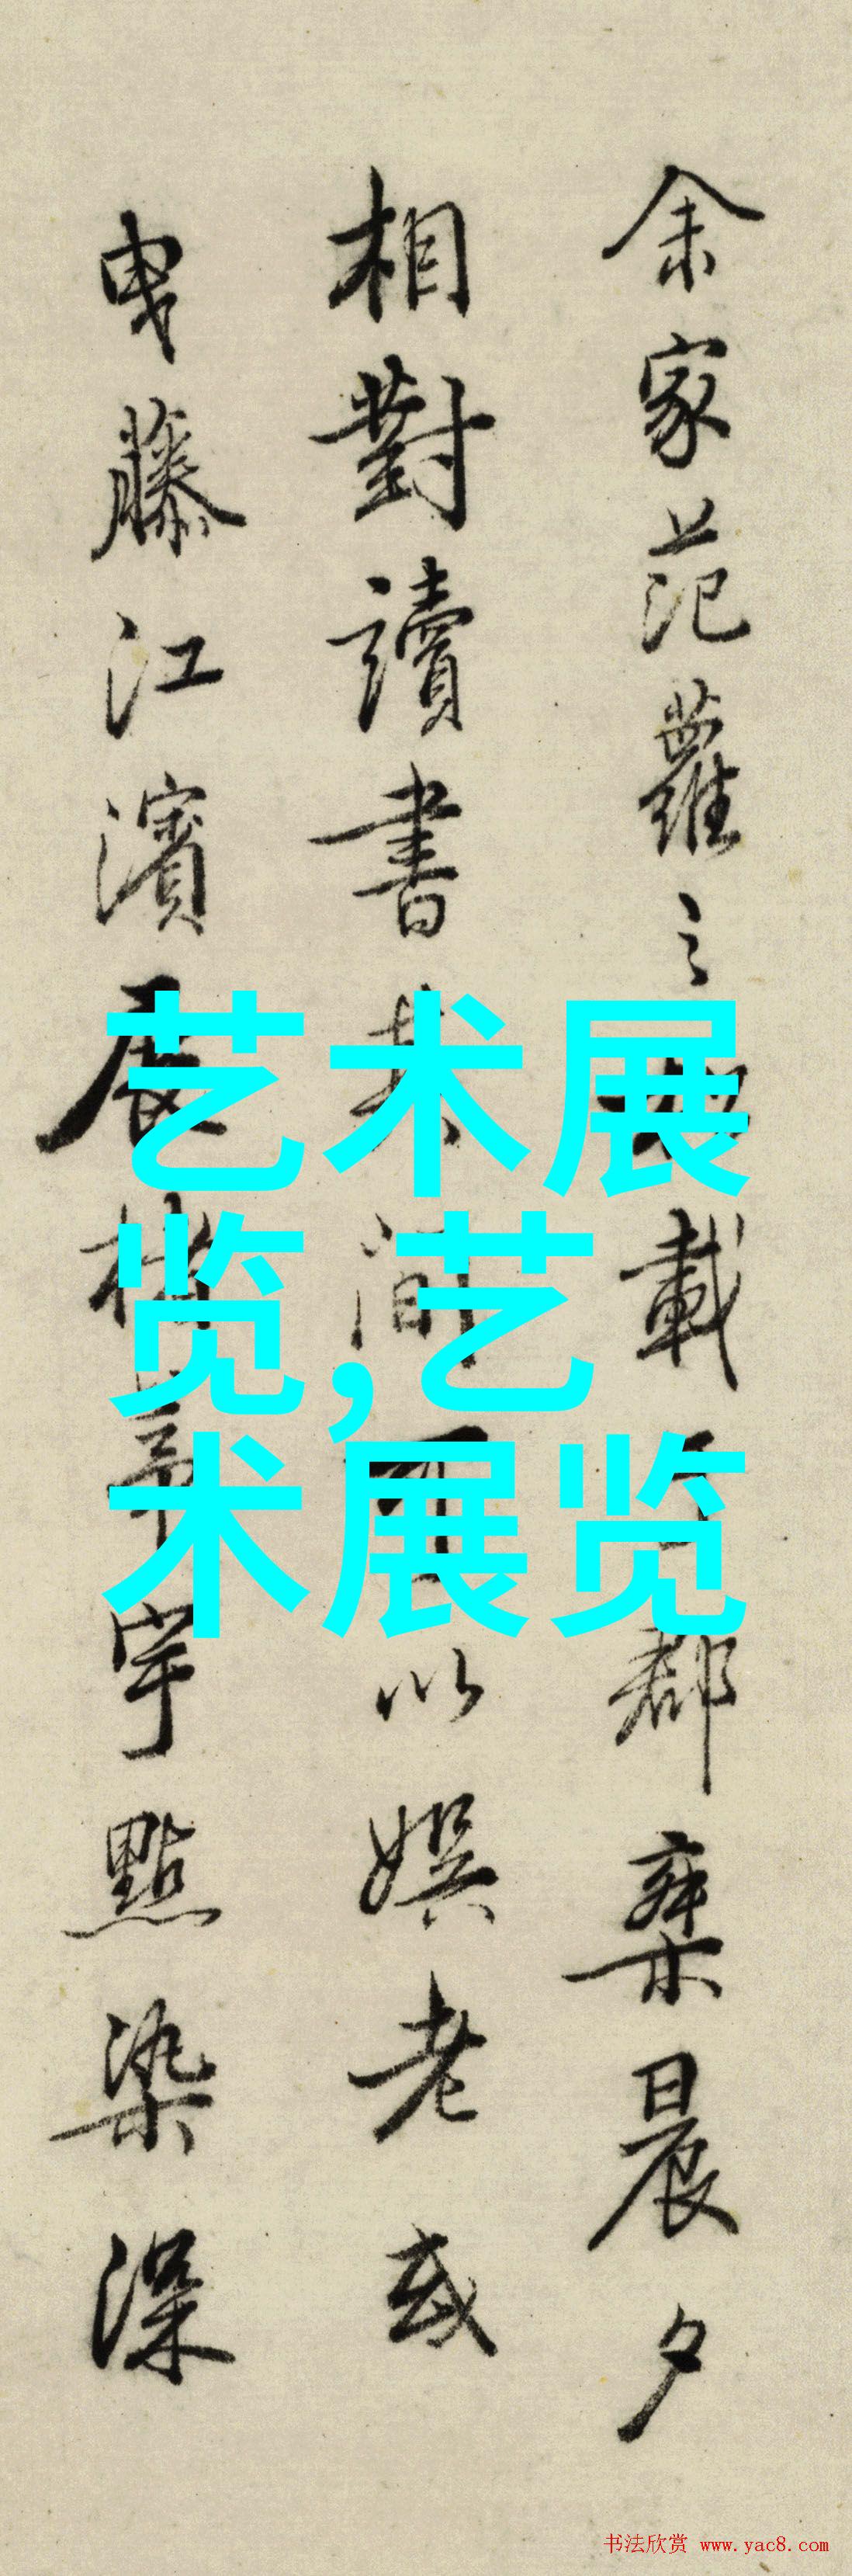 余家范蘿之
載
郡棄晨夕
相對讀書其間
以娛老或
曳藤江濱展
宇點染深
艺术展
览,艺
术展览
书法欣赏 www.yac8.com